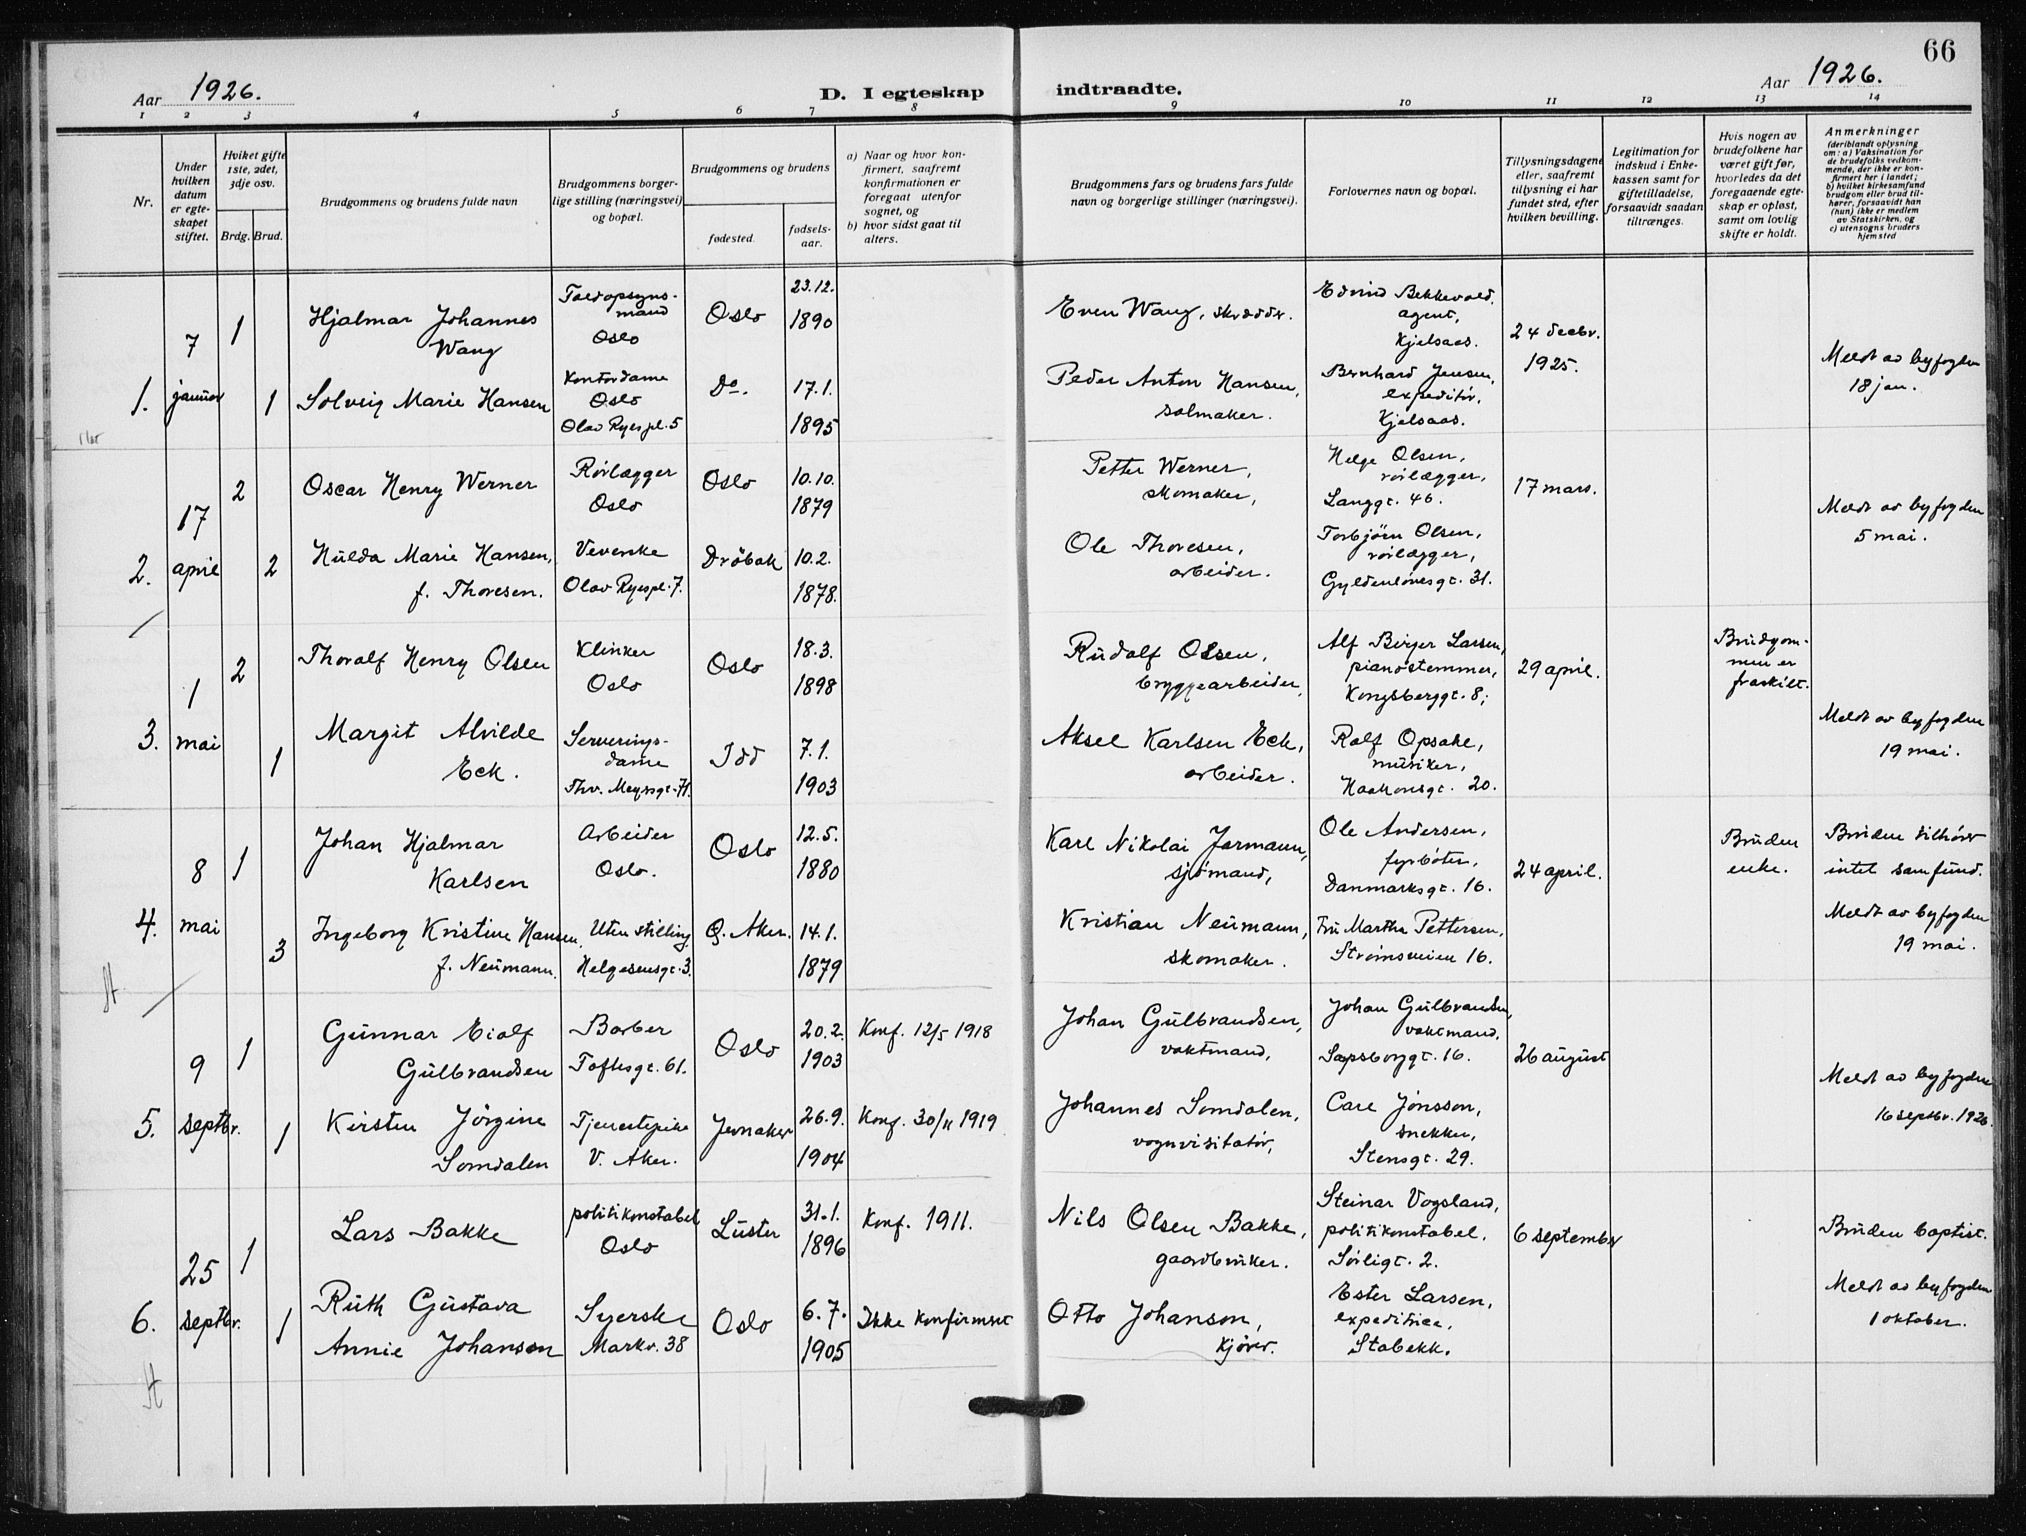 66
Aar 1926.
D. I egteskap indtraadte.
Aar 1926.
1 2 3 4 5 6 7 8 9 10 11 12 13 14
Nr.
Under
hvilken
datum
er egte-
skapet
stiftet.
Hviket gifte
1ste, 2det,
3dje osv.
Brdg. Brud.
Brudgommens og brudens fulde navn
Brudgommens borger-
lige stilling (næringsvei)
og bopæl.
Brudgommens og brudens
fødested.
fødsels-
aar.
a) Naar og hvor kon-
firmert, saafremt
konfirmationen er
foregaat utenfor
sognet, og
b) hvor sidst gaat til
alters.
Brudgommens fars og brudens fars fulde
navn og borgerlige stillinger (næringsvei).
Forlovernes navn og bopæl.
Tillysningsdagene
eller, saafremt
tillysning ei har
fundet sted, efter
hvilken bevilling.
Legitimation for
indskud i Enke-
kassen samt for
giftetilladelse,
forsaavidt saadan
tiltrænges.
Hvis nogen av
brudefolkene har
været gift før,
hvorledes da det
foregaaende egte-
skap er opløst,
samt om lovlig
skifte er holdt.
Anmerkninger
(deriblandt oplysning
om: a) Vaksination for
de brudefolks vedkom-
mende, der ikke er kon-
firmert her i landet;
b) hvilket kirkesamfund
brudgom eller brud til-
hører, forsaavidt han
(hun) ikke er medlem
av Statskirken, og
c) utensogns bruders
hjemsted
1.
7
januar
1
Hjalmar Johannes
Wang
Toldopsyns-
mand
Oslo
Oslo
23.12.
1890
Even Wang, skrædder.
Edvind Bekkevold,
agent,
Kjelsaas.
24 decbr.
1925.
1
Solveig Marie Hansen
Kontordame
Oslo
Olav Ryespl. 5
Do.
17.1.
1895
Peder Anton Hansen,
salmaker.
Bernhard Jensen,
expeditør,
Kjelsaas.
Meldt av byfogden
18 jan.
2.
17
april
2
Oscar Henry Werner
Rørlægger
Oslo
Oslo
10.10.
1879
Petter Werner,
skomaker,
Helge Olsen,
rørlægger,
Langgt. 46.
17 mars.
2
Hulda Marie Hansen,
f. Thoresen.
Veverske
Olav Ryespl. 7.
Drøbak
10.2.
1878.
Ole Thoresen,
arbeider.
Torbjørn Olsen,
rørlægger,
Gyldenløvesgt. 31.
Meldt av byfogden
5 mai.
3.
1
mai
2
Thoralf Henry Olsen
Klinker
Oslo
Oslo
18.3.
1898
Rudolf Olsen,
bryggearbeider,
Alf Birger Larsen,
pianostemmer,
Kongsberggt. 8;
29 april.
Brudgom-
men er
fraskilt.
1
Margit Alvilde
Eck.
Serverings-
dame
Thv. Meyersgt. 71.
Idd
7.1.
1903
Aksel Karlsen Eck,
arbeider.
Rolf Opsahl,
musiker,
Haakonsgt. 20.
Meldt av byfogden
19 mai.
4.
8
mai
1
Johan Hjalmar
Karlsen
Arbeider
Oslo.
Oslo
12.5.
1880
Karl Nikolai Jormann,
sjømand,
Ole Andersen,
fyrbøter,
Danmarksgt. 16.
24 april.
Bruden
enke.
Bruden tilhører
intet samfund.
3
Ingeborg Kristine Hansen,
f. Neumann.
Uten stilling
Helgesensgt. 3.
Ø. Aker.
14.1.
1879
Kristian Neumann,
skomaker.
Fru Martha Pettersen,
Strømsveien 16.
Meldt av byfogden
19 mai.
5.
9
septbr.
1
Gunnar Eialf
Gulbrandsen
Barber
Toftesgt. 61.
Oslo
20.2.
1903
Konf. 12/5 1918
Johan Gulbrandsen,
vaktmand,
Johan Gulbrandsen,
vaktmand,
Sarpsborggt. 16.
26 august
1
Kirsten Jörgine
Somdalen
Tjenestepike
V. Aker.
Jevnaker
26.9.
1904
Konf. 30/11 1919
Johannes Somdalen,
vognvisitatør,
Carl Jonsson,
snekker,
Stensgt. 29.
Meldt av byfogden
16 septbr. 1926.
6.
25
septbr.
1
Lars Bakke
politikonstabel
Oslo
Luster
31.1.
1896
Konf. 1911.
Nils Olsen Bakke,
gaardbruker.
Steinar Vogsland,
politikonstabel.
Sørligt. 2.
6 september
Bruden baptist.
1
Ruth Gustava
Annie Johanson
Syerske
Markv. 38
Oslo
6.7.
1905
Ikke konfirmert
Otto Johanson,
Kjører.
Ester Larsen,
expeditrice,
Stabekk.
Meldt av byfogden
1 oktober.